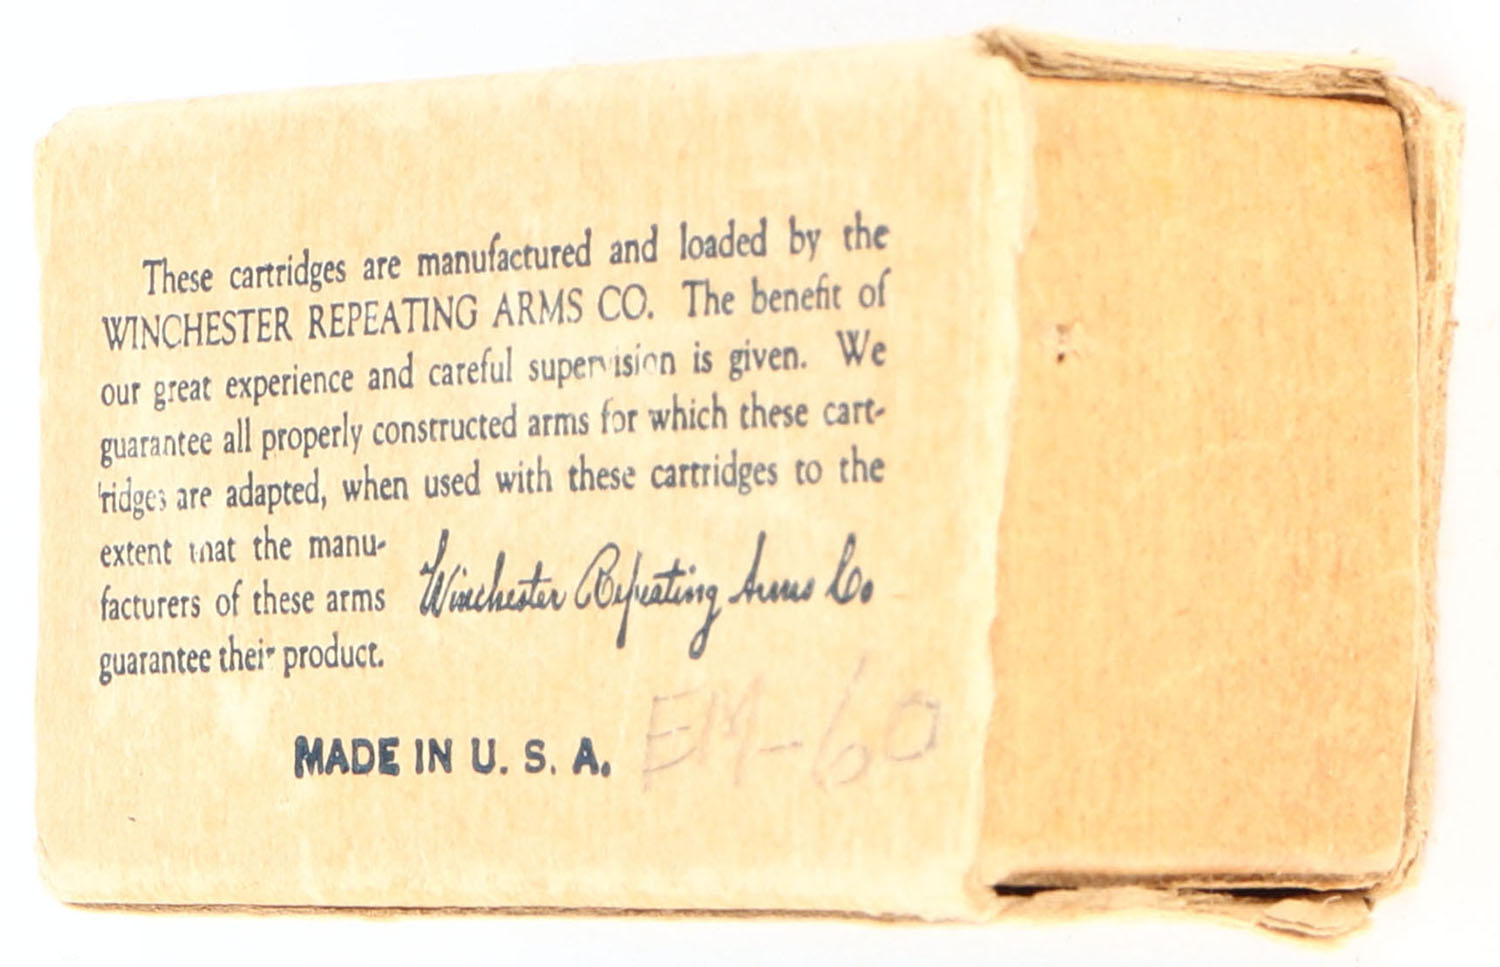 These cartridges are manufactured and loaded by the
WINCHESTER REPEATING ARMS CO. The benefit of
our great experience and careful supervision is given. We
guarantee all properly constructed arms for which these cart-
ridges are adapted, when used with these cartridges to the
extent that the manu-
facturers of these arms
guarantee their product.
Winchester Repeating Arms Co
MADE IN U. S. A.
EM-60